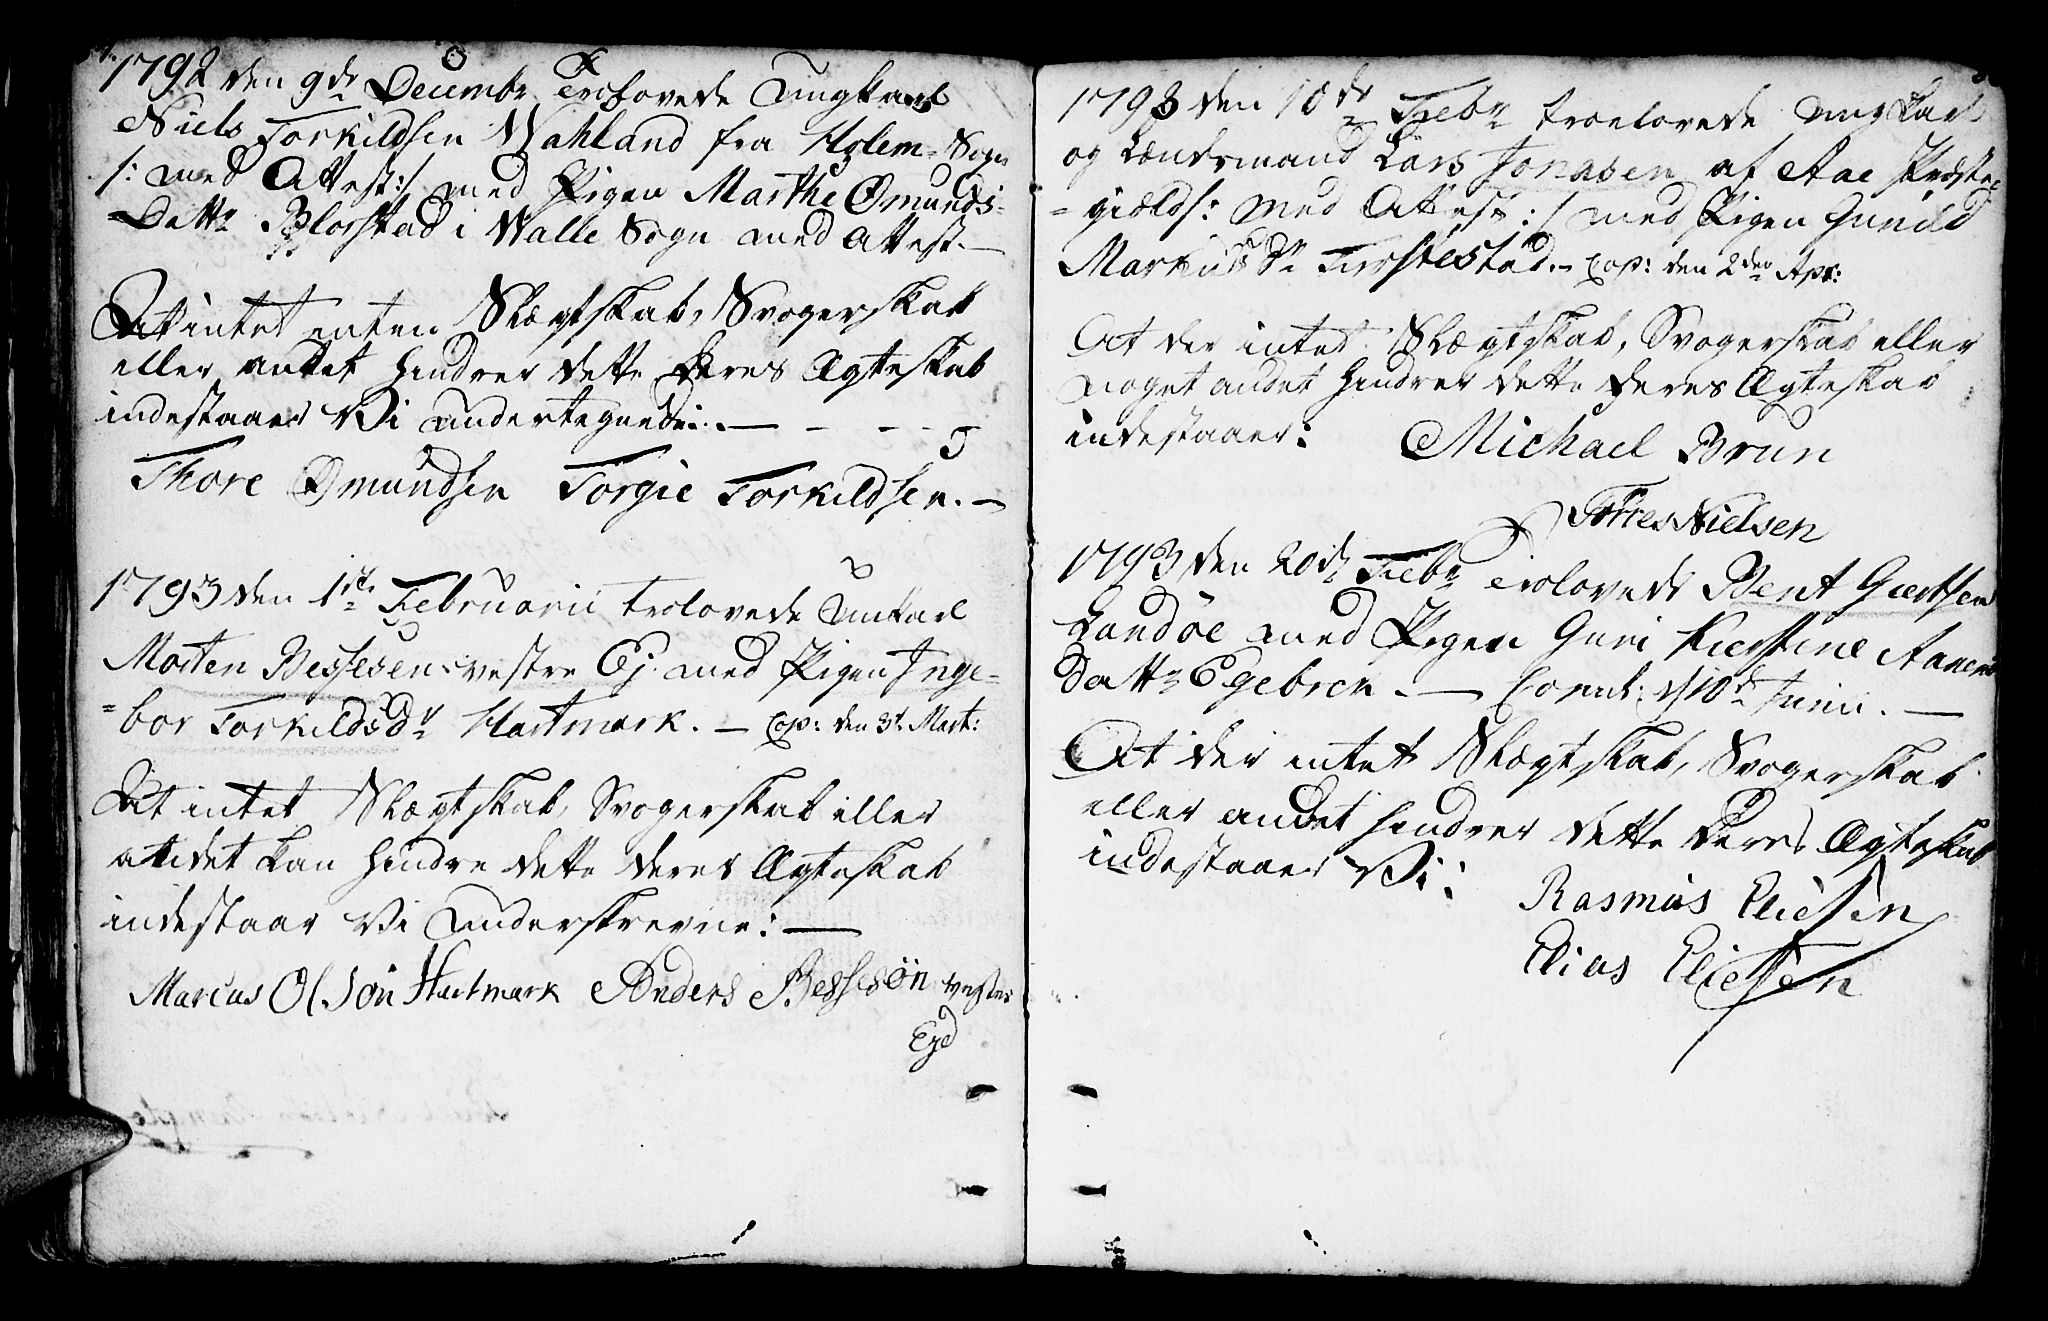 1792 den 9de Decembr Trolovede Ungkarl
Niels Torkildsen Wahland fra Holem-Sogn
/: med Attest:/ med Pigen Marthe Omunds-
=Dattr Blörstad i Walle Sogn med Attest.—
At intet enten Slægtskab, Svogerskab
eller andet hindrer dette deres Ægteskab
indestaaer Vi Undertegnede:. — - - -
Thore Omundsen Torgie Torkildsen. —
1793 den 1ste Februarii trolovede Unkarl
Morten Bessesen vestre Ej. med Pigen Inge-
=bor Torkildsdr Hartmark. — Cop: den 3d. Mart:
At intet Slægtskab, Svogerskab eller
andet kan hindre dette deres Ægteskab
indestaar Vi Underskrevne: —
Marcus Olsön Hartmark Anders Bessesön vester
Eyd
1793 den 10de Febr troelovede ungkarl
og Lændsmand Lars Jonasen af Aae Præste-
=giælds: med Attest :/ med Pigen Gunild
Markusdr Tiorstestad.— Cop: den 2den Apr:
At der intet Slægtskab, Svogerskab eller
noget andet hindrer dette deres Ægteskab
indestaaer: Michael Brun
Torres Nielsen
1793 den 20de Febr Trolovede Bent Giertsen
Landöe med Pigen Guri Kierstine Aanens
Dattr Egebren. — d 10de Junii. —
At der intet Slægtskab, Svogerskab
eller andet hindrer dette deres Ægteskab
indestaaer Vi:
Rasmus Eliesen
Elias Eliesen